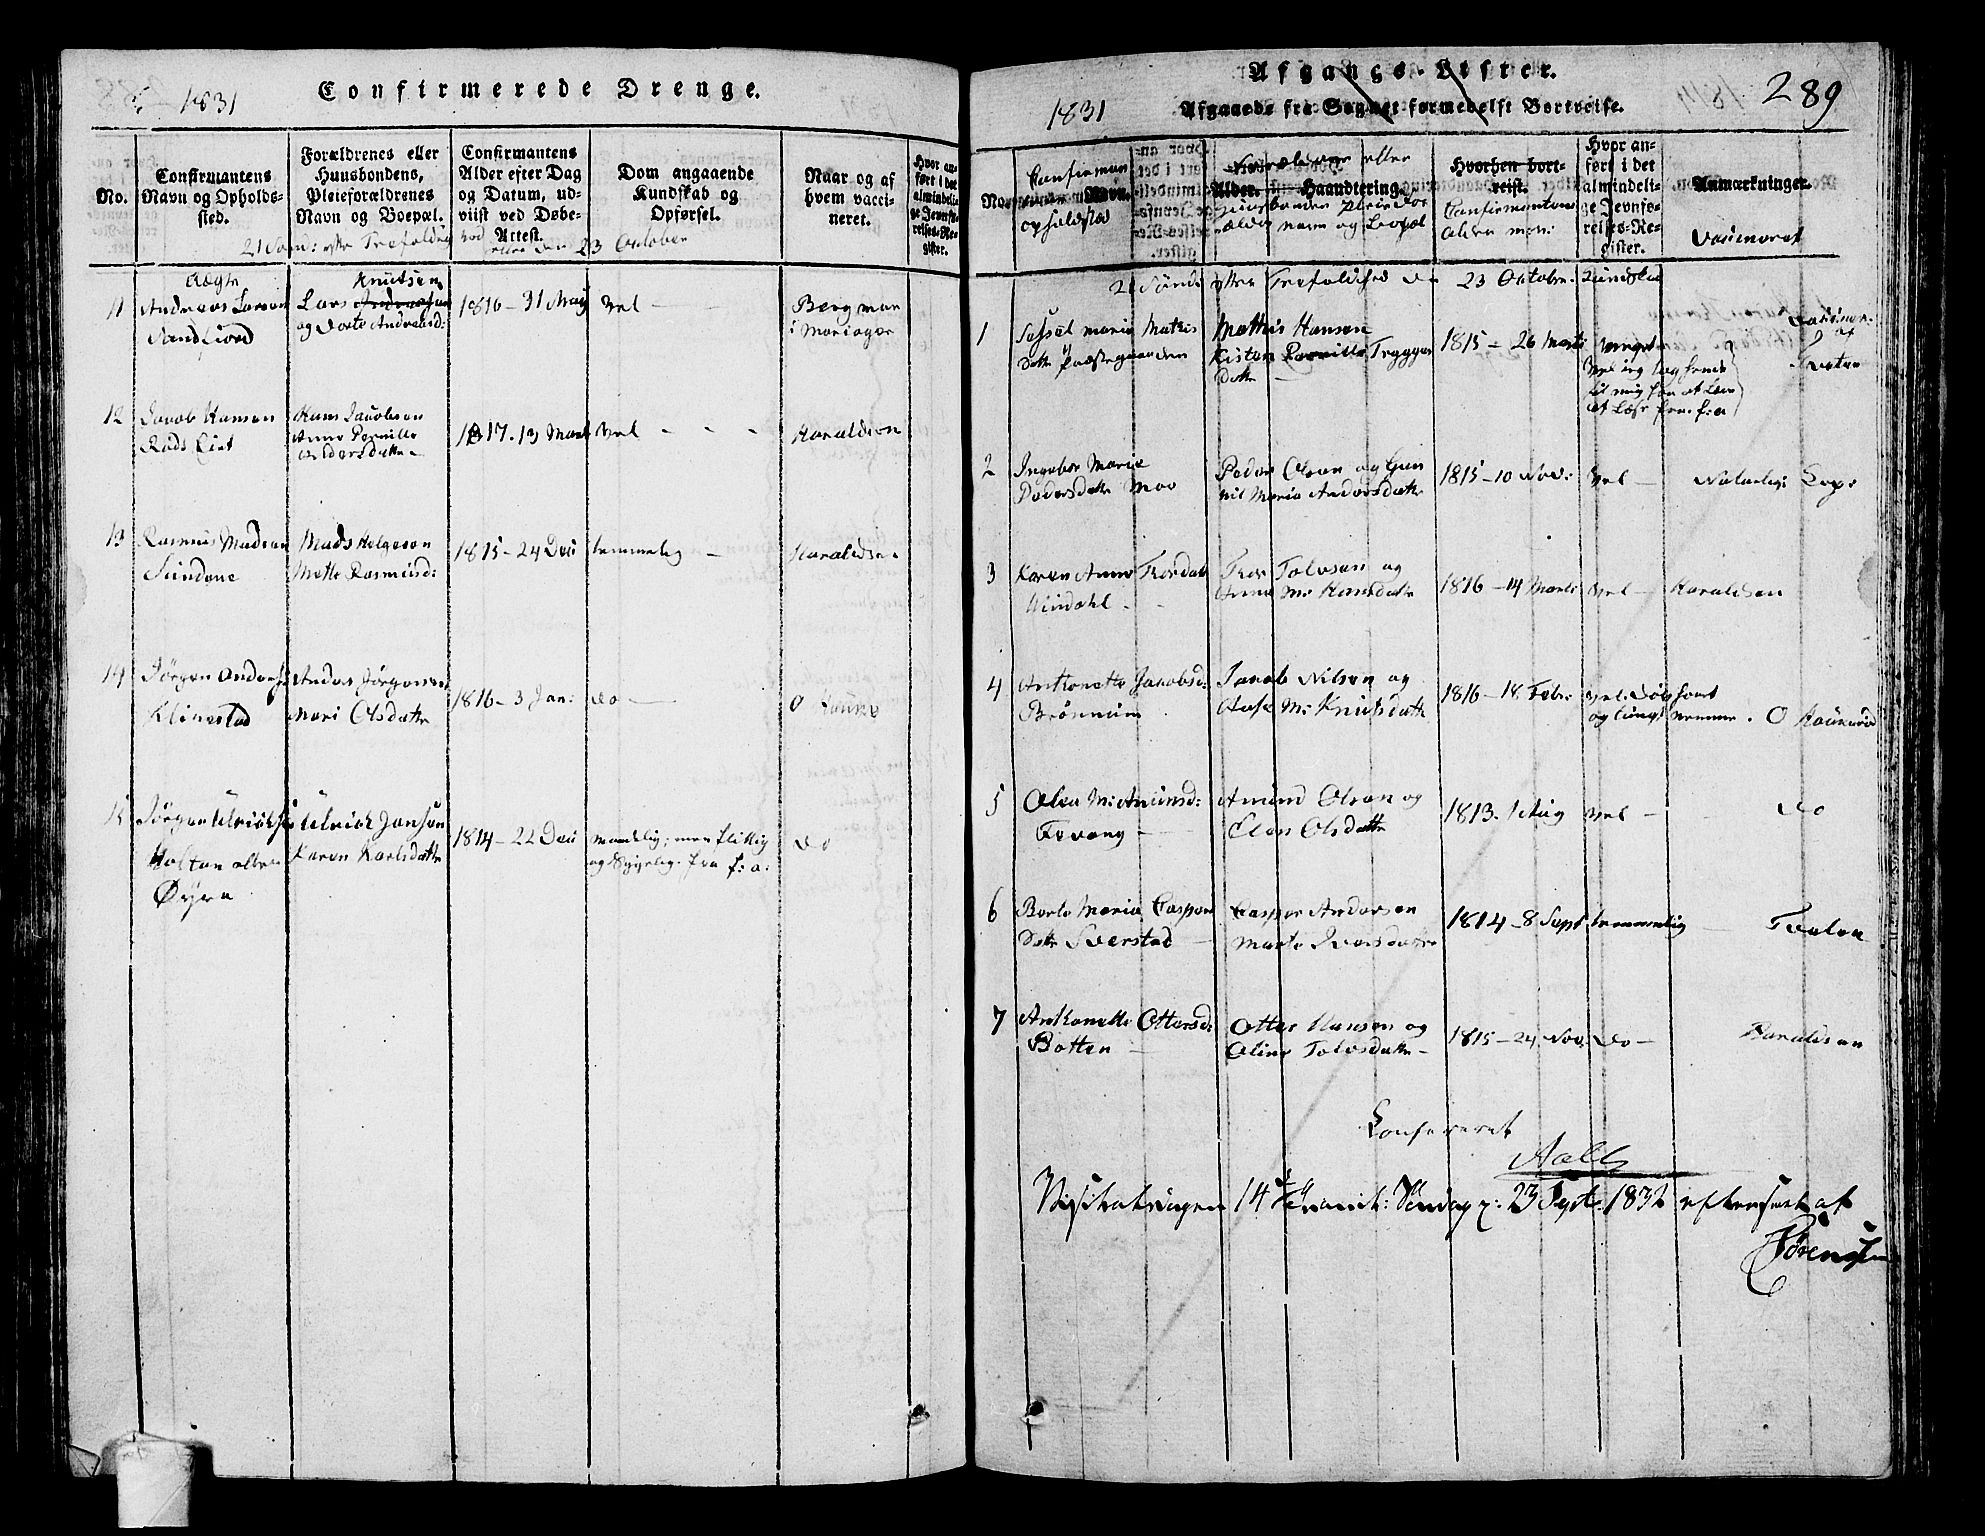 1831
Confirmerede Drenge.
No.
Confirmantens Navn og Opholdssted.
Forældrenes eller Huusbondens, Pleieforældrenes Navn og Boepæl.
Confirmantens Alder efter Dag og Datum, udviist ved Døbe-Attest.
Dom angaaende Kundskab og Opførsel.
Naar og af hvem vaccineret.
Hvor anført i det almindelige Jevnførelses-Register.
21 Sønd: efter Trefoldighed den 23 October
11
Ægte
Andreas Larsen
Sandkiød
Knutsen
Lars Andreasen
og Dorte Andreasd:
1816 - 31 May
Vel
Bergman
i Mariager
12
Jacob Hansen
Hans Jacobsen
Anne Pernille
1817. 13 Mart
Vel - - -
Haraldsen
13
Rasmus Madsen
Sundene
Mads Helgesen
Mette Rasmusd:
1815 - 24 Dec
temmelig -
Haraldsen
14
Jørgen Anders
Klinestad
Anders Jørgensen
Mari Olsdatter
1816 - 3 Jan:
do -
O Hauke
15
Jørgen Ulrichs
Holtan eller
Øyen
Ulrich Jansen
Karen Karlsdatter
1814 - 22 Dec
maadelig; men flittig
og Sygelig. fra f: a:
do
Afgangs-Lister.
289
1831
Afgaaede fra Sognet formedelst Bortreise.
No.
Confirman
Navn.
opholdsted
Forældrene eller
Alder. Haandtering.
Huusbonden Pleie For
ældres navn og Bopæl
Hvorhen bortreist.
Confirmantens
Alder
Hvor anført i det almindelige Jevnførelses-Register.
Anmærkninger.
Vaccineret
21 Sønd: efter Trefoldighed d. 23 Oktobr: Kundskab
1
Sessel Maria Mathis
Datter Præstegaarden
Mathis Hansen
Kisten Pernille Trygges
datter
1815 - 26 Marts
meget
Vel
2
Ingebor Maria
Pedersdatter Moe
Peder Olsen og Gun
nil Maria Andersdatter
1815 - 10 Nov:
Vel -
Naturlig: Kop:
3
Karen Anne Thordatt
Thor Tolvsen og
Anne M: Hansdatter
1816 - 14 Marts
Vel -
Haraldsen
4
Anthonette Jacobsd:
Brønnum
Jacob Nilsen og
Aase M: Knutsdatter
1816 - 18 Feb:
Vel:
nemme. O
5
Olea M: Amundsd:
Fevang -
Amund Olsen og
Elen Olsdatter
1813. 1 Aug
Vel -
do
6
Berte Maria Casper
Datter Sverstad -
Casper Andersen
Marte Iversdatter
1814 - 8 Sept
temmelig -
7
Anthonette Ottersd:
Botten -
Otter Hansen og
Oline Tolvsdatter -
1815 - 24 Nov:
do -
Haraldsen
Confereret
Aall
Visitatsdagen 14 p: Trinit: Søndag d: 23 Septr. 1832 efterseet af
Sørensen